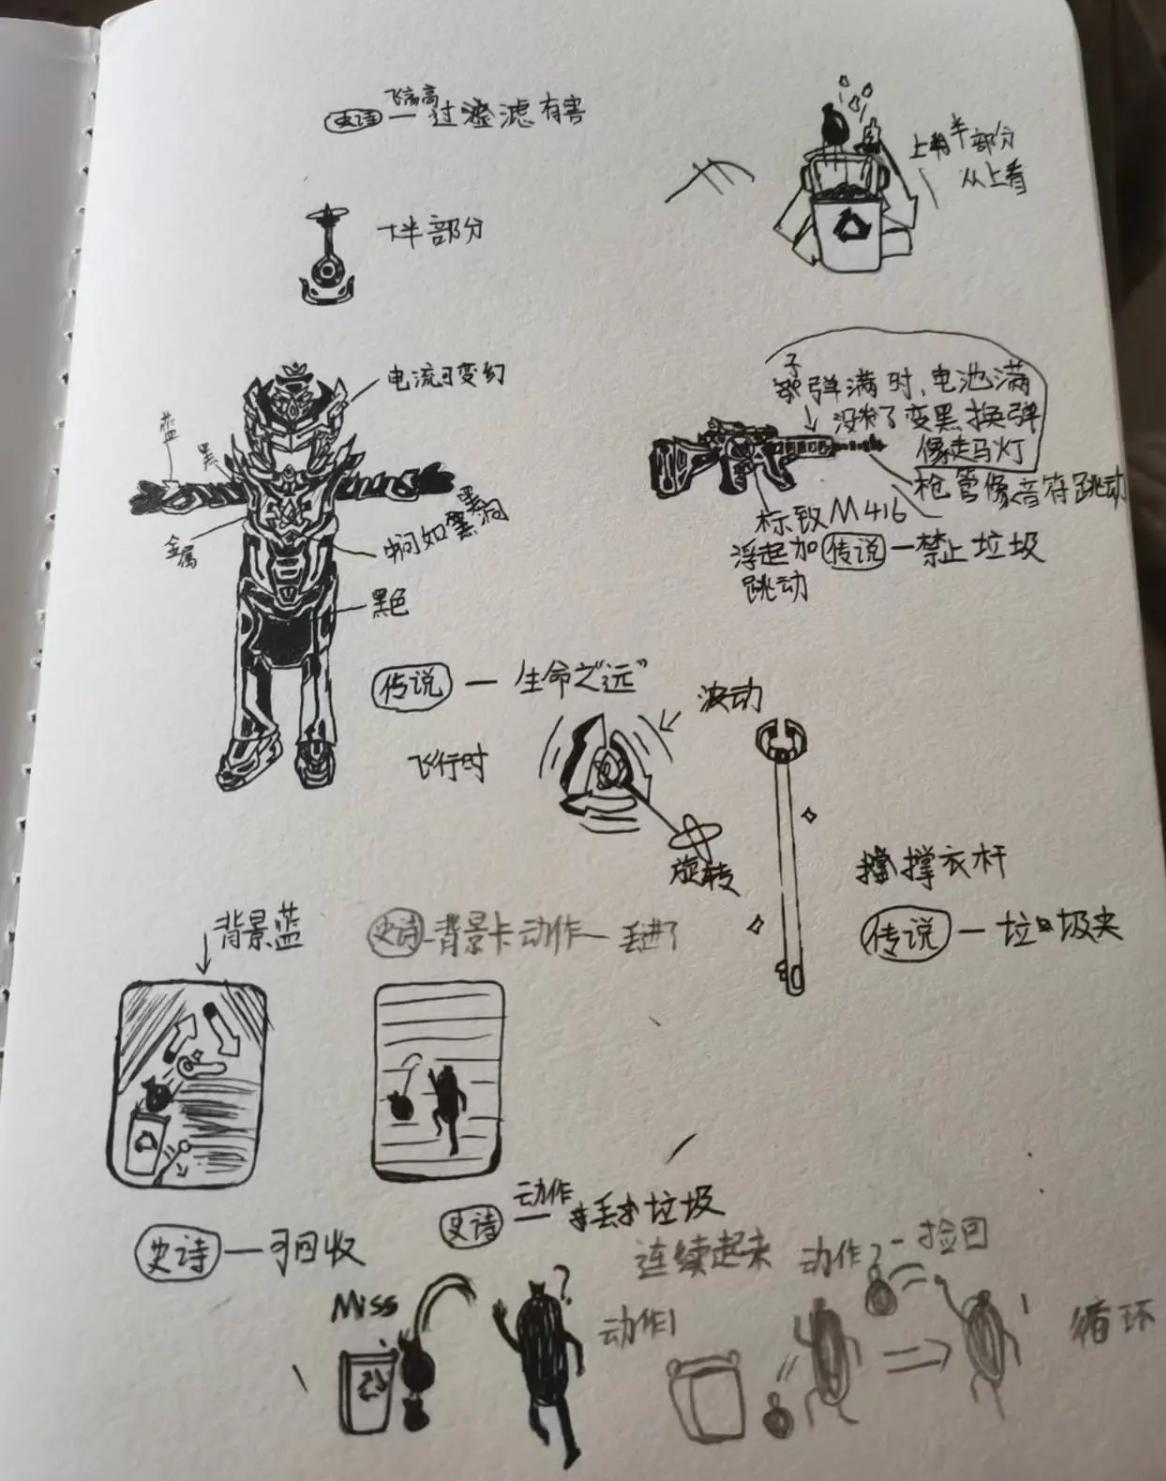 飞高高
史诗 — 过滤有害
上半部分
从上看
半部分
电流可变幻
蓝
黑
金属
中间如黑洞
黑色
子弹满时,电池满
没来了变黑换弹
像走马灯
枪管像音符跳动
标致M416
浮起加
跳动
传说 — 禁止垃圾
传说 — 生命之"远"
波动
飞行时
旋转
撑衣杆
传说 — 垃圾夹
背景蓝
史诗 - 背景卡动作 — 丢进了
史诗 — 可回收
动作
史诗 — 丢垃圾
连续起来
动作2 - 捡回
Miss
?
动作1
循环